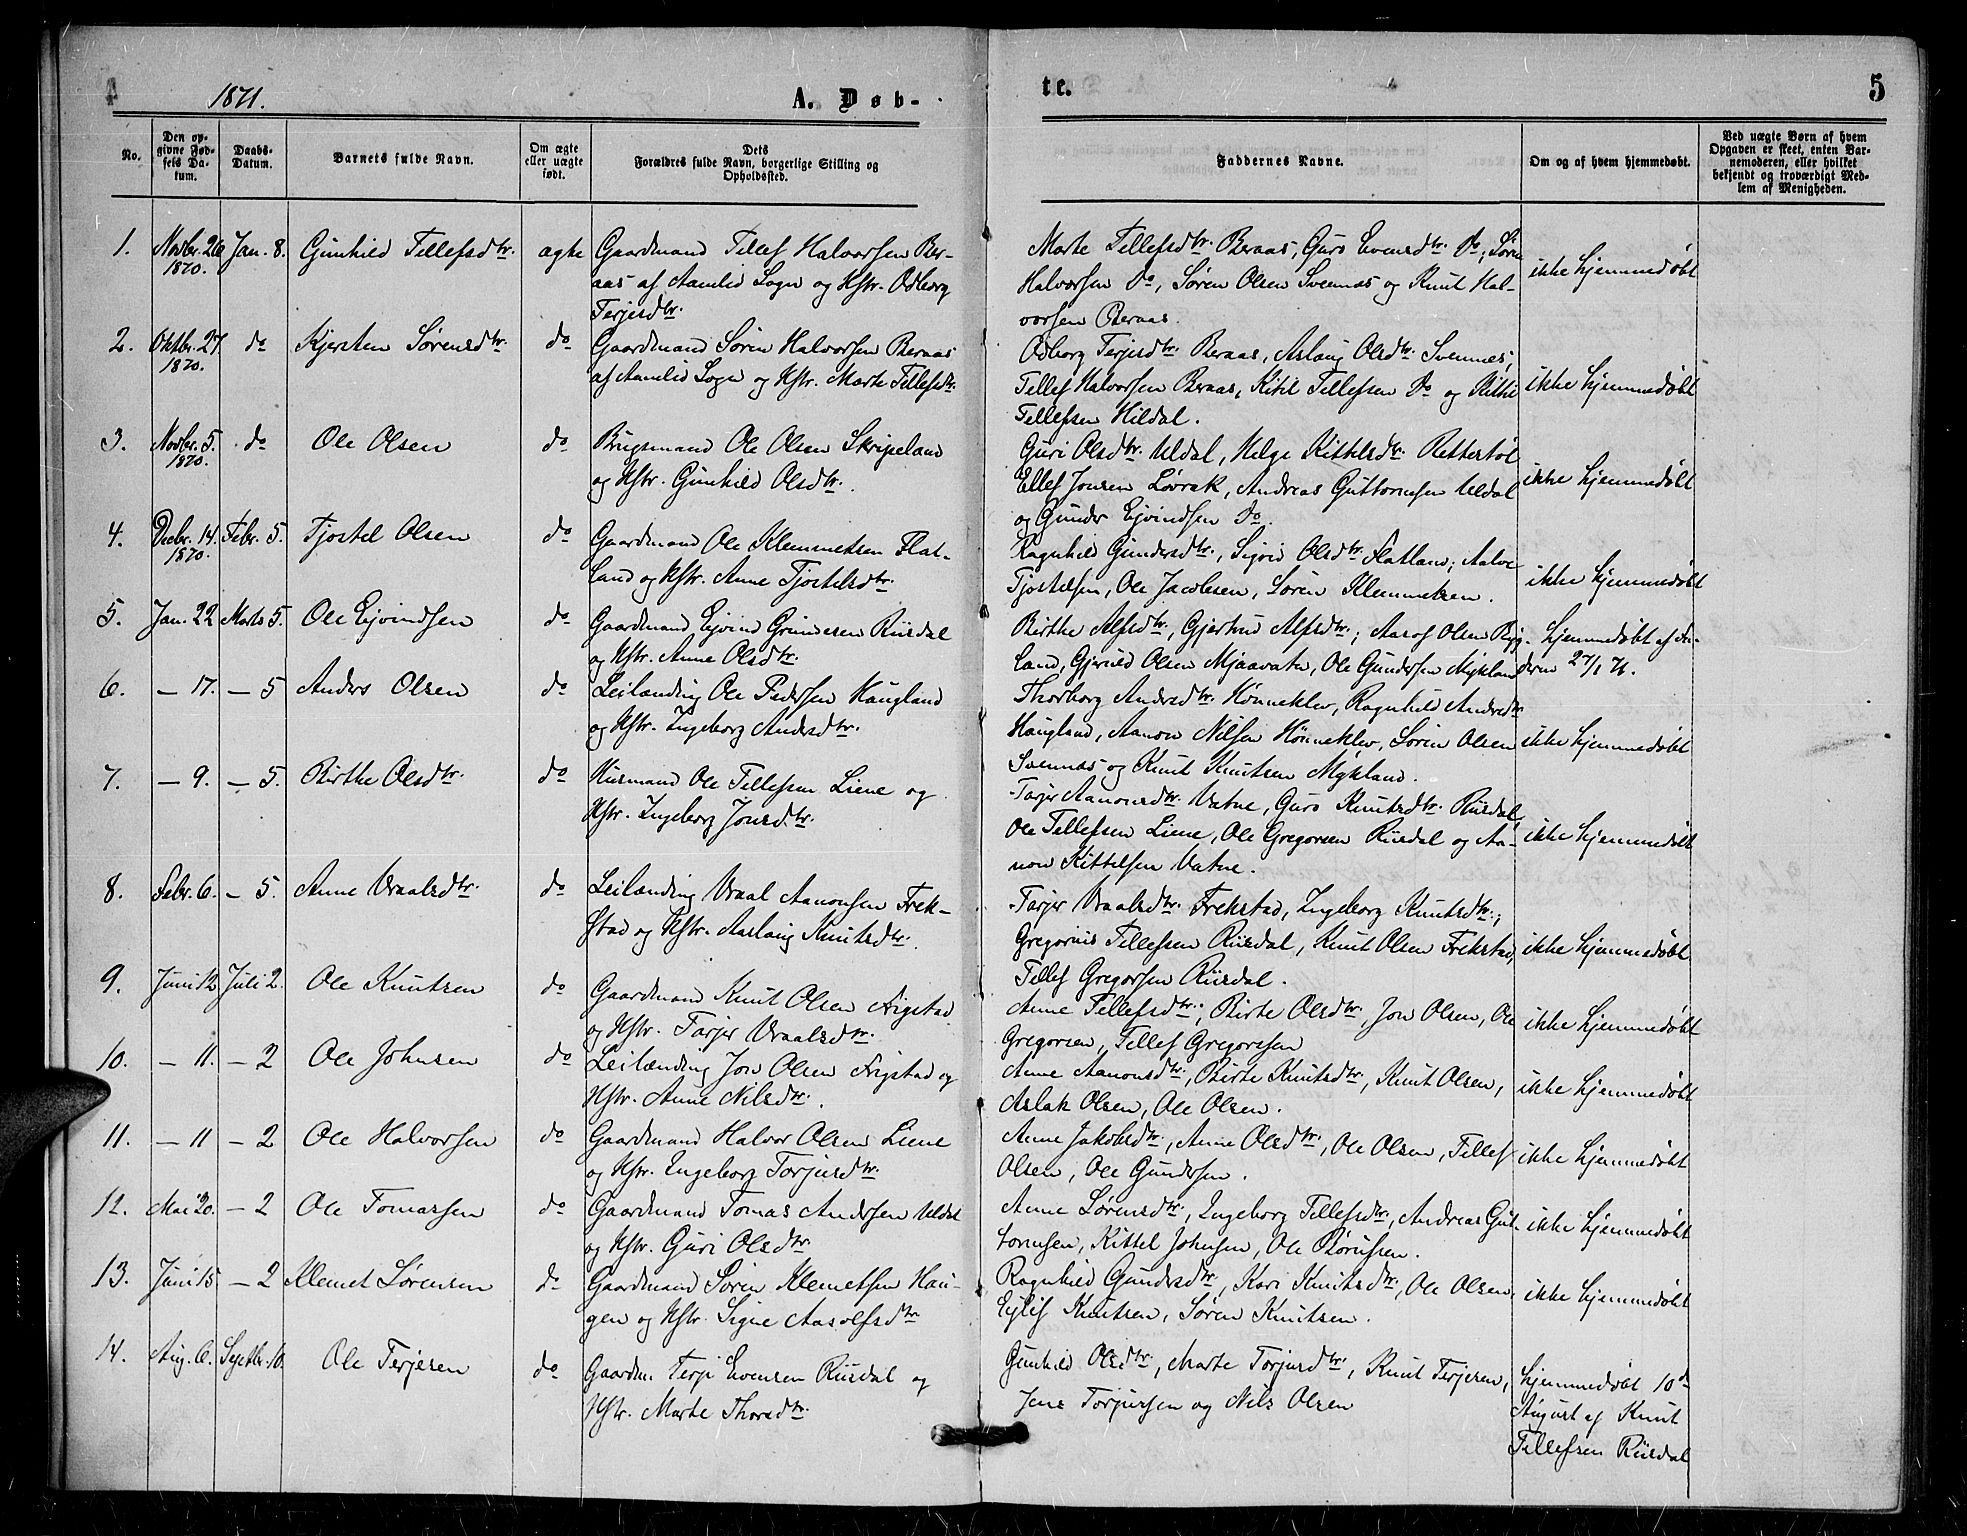 4
1871.
A. Døb-
te.
5
No.
Den op-
givne Fød-
sels Da-
tum.
Daabs-
Datum.
Barnets fulde Navn.
Om ægte
eller uægte
født.
Dets
Forældres fulde Navn, borgerlige Stilling og
Opholdssted.
Faddernes Navne.
Om og af hvem hjemmedøbt.
Ved uægte Børn af hvem
Opgaven er skeet, enten Bar-
nemoderen, eller hvilket
bekjendt og troværdigt Med-
lem af Menigheden.
1.
Novbr. 26
1870.
Jan. 8.
Gunhild Tellefsdtr.
ægte
Gaardmand Tellef Halvorsen Ber-
aas af Aamlid Sogn og Hstr. Odborg
Terjesdtr.
Marte Tellefsdtr. Beraas, Guro Evensdtr. do, Søren
Halvorsen do, Søren Olsen Svennes og Knut Hal-
vorsen Beraas.
ikke hjemmedøbt
2.
Oktbr. 27
1870.
do
Kjersten Sørensdtr.
do
Gaardmand Søren Halvorsen Beraas
af Aamlid Sogn og Hstr. Marte Tellefsdtr.
Odborg Terjesdtr. Beraas, Aslaug Olsdtr. Svennes,
Tellef Halvorsen Beraas, Kitil Tellefsen do og
Tellefsen Hildal.
ikke hjemmedøbt
3.
Novbr. 5.
1870.
do
Ole Olsen
do
Brugsmand Ole Olsen Skripeland
og Hstr. Gunhild Olsdtr.
Guri Olsdtr. Uldal, Helge Kittelsdtr. Rettertøl
Ellef Jonsen Løvrak, Andreas Guttormsen Uldal
og Gunder Ejvindsen do.
ikke hjemmedøbt
4.
Decbr. 14.
1870.
Febr. 5.
Tjostel Olsen
do
Gaardmand Ole Klemmetsen Flat-
land og Hstr. Anne Tjostelsdtr.
Ragnhild Gundersdtr., Sigrid Olsdtr. Flatland, Aalve
Tjostelsen, Ole Jacobsen, Søren Klemmetsen.
ikke hjemmedøbt
5.
Jan. 22
Marts 5.
Ole Ejvindsen
do
Gaardmand Ejvind Gundersen Riisdal
og Hstr. Anne Olsdtr.
Birthe Alfsdtr., Gjertrud Alfsdtr., Aasof Olsen Rigg-
land, Gjeruld Olsen Mjaavatn, Ole Gundersen Mykland
hjemmedøbt af Fa-
deren 27/1 71.
6.
— 17.
— 5
Anders Olsen
do
Leilænding Ole Pedersen Haugland
og Hstr. Ingeborg Andersdtr.
Thorborg Andersdtr. Hønneklev, Ragnhild Andersdtr.
Haugland, Aanon Nilsen Hønneklev, Søren Olsen
Svennes og Knut Knutsen Mykland.
ikke hjemmedøbt
7.
— 9.
— 5.
Birthe Olsdtr.
do
Husmand Ole Tellefsen Liene og
Hstr. Ingeborg Jonsdtr.
Tarjer Aanonsdtr. Vatne, Guro Knutsdtr. Riisdal,
Ole Tellefsen Liene, Ole Gregorsen Riisdal og Aa-
non Kittelsen Vatne.
ikke hjemmedøbt
8.
Febr. 6.
— 5.
Anne Vraalsdtr.
do
Leilænding Vraal Aanonsen Frek-
stad og Hstr. Aaslaug Knutsdtr.
Tarjer Vraalsdtr. Frekstad, Ingeborg Knutsdtr.,
Gregorius Tellefsen Riisdal, Knut Olsen Frekstad,
Tellef Gregorsen Riisdal.
ikke hjemmedøbt
9.
Juni 12
Juli 2.
Ole Knutsen
do
Gaardmand Knut Olsen Frigstad
og Hstr. Tarjer Vraalsdtr.
Anne Tellefsdtr., Birte Olsdtr., Jon Olsen, Ole
Gregorsen, Tellef Gregorsen
ikke hjemmedøbt
10.
— 11.
— 2
Ole Johnsen
do
Leilænding Jon Olsen Frigstad og
Hstr. Anne Nilsdtr.
Anne Aanonsdtr., Birte Knutsdtr., Knut Olsen,
Aslak Olsen, Ole Olsen.
ikke hjemmedøbt
11.
— 11
— 2
Ole Halvorsen
do
Gaardmand Halvor Olsen Liene
og Hstr. Ingeborg Torjusdtr.
Anne Jakobsdtr., Anne Olsdtr., Ole Olsen, Tellef
Olsen, Ole Gundersen.
ikke hjemmedøbt
12.
Mai 20.
— 2
Ole Tomassen
do
Gaardmand Tomas Andersen Uldal
og Hstr. Guri Olsdtr.
Anne Sørensdtr., Ingeborg Tellefsdtr., Andreas Gut-
tormsen, Kittel Johnsen, Ole Børufsen.
ikke hjemmedøbt
13.
Juni 15
— 2
Klemet Sørensen
do
Gaardmand Søren Klemetsen Hau-
gen og Hstr. Signe Aasolfsdtr
Ragnhild Gundersdtr., Kari Knutsdtr., Ole Olsen,
Ejlif Knutsen, Søren Knutsen.
ikke hjemmedøbt
14.
Aug. 6.
Septbr. 10.
Ole Terjesen
do
Gaardm. Terje Evensen Riisdal og
Hstr. Marte Thorsdtr.
Gunhild Olsdtr., Marte Torjusdtr., Knut Terjesen,
Jens Torjussen og Nils Olsen
hjemmedøbt 10de
August af Knut
Tellefsen Riisdal